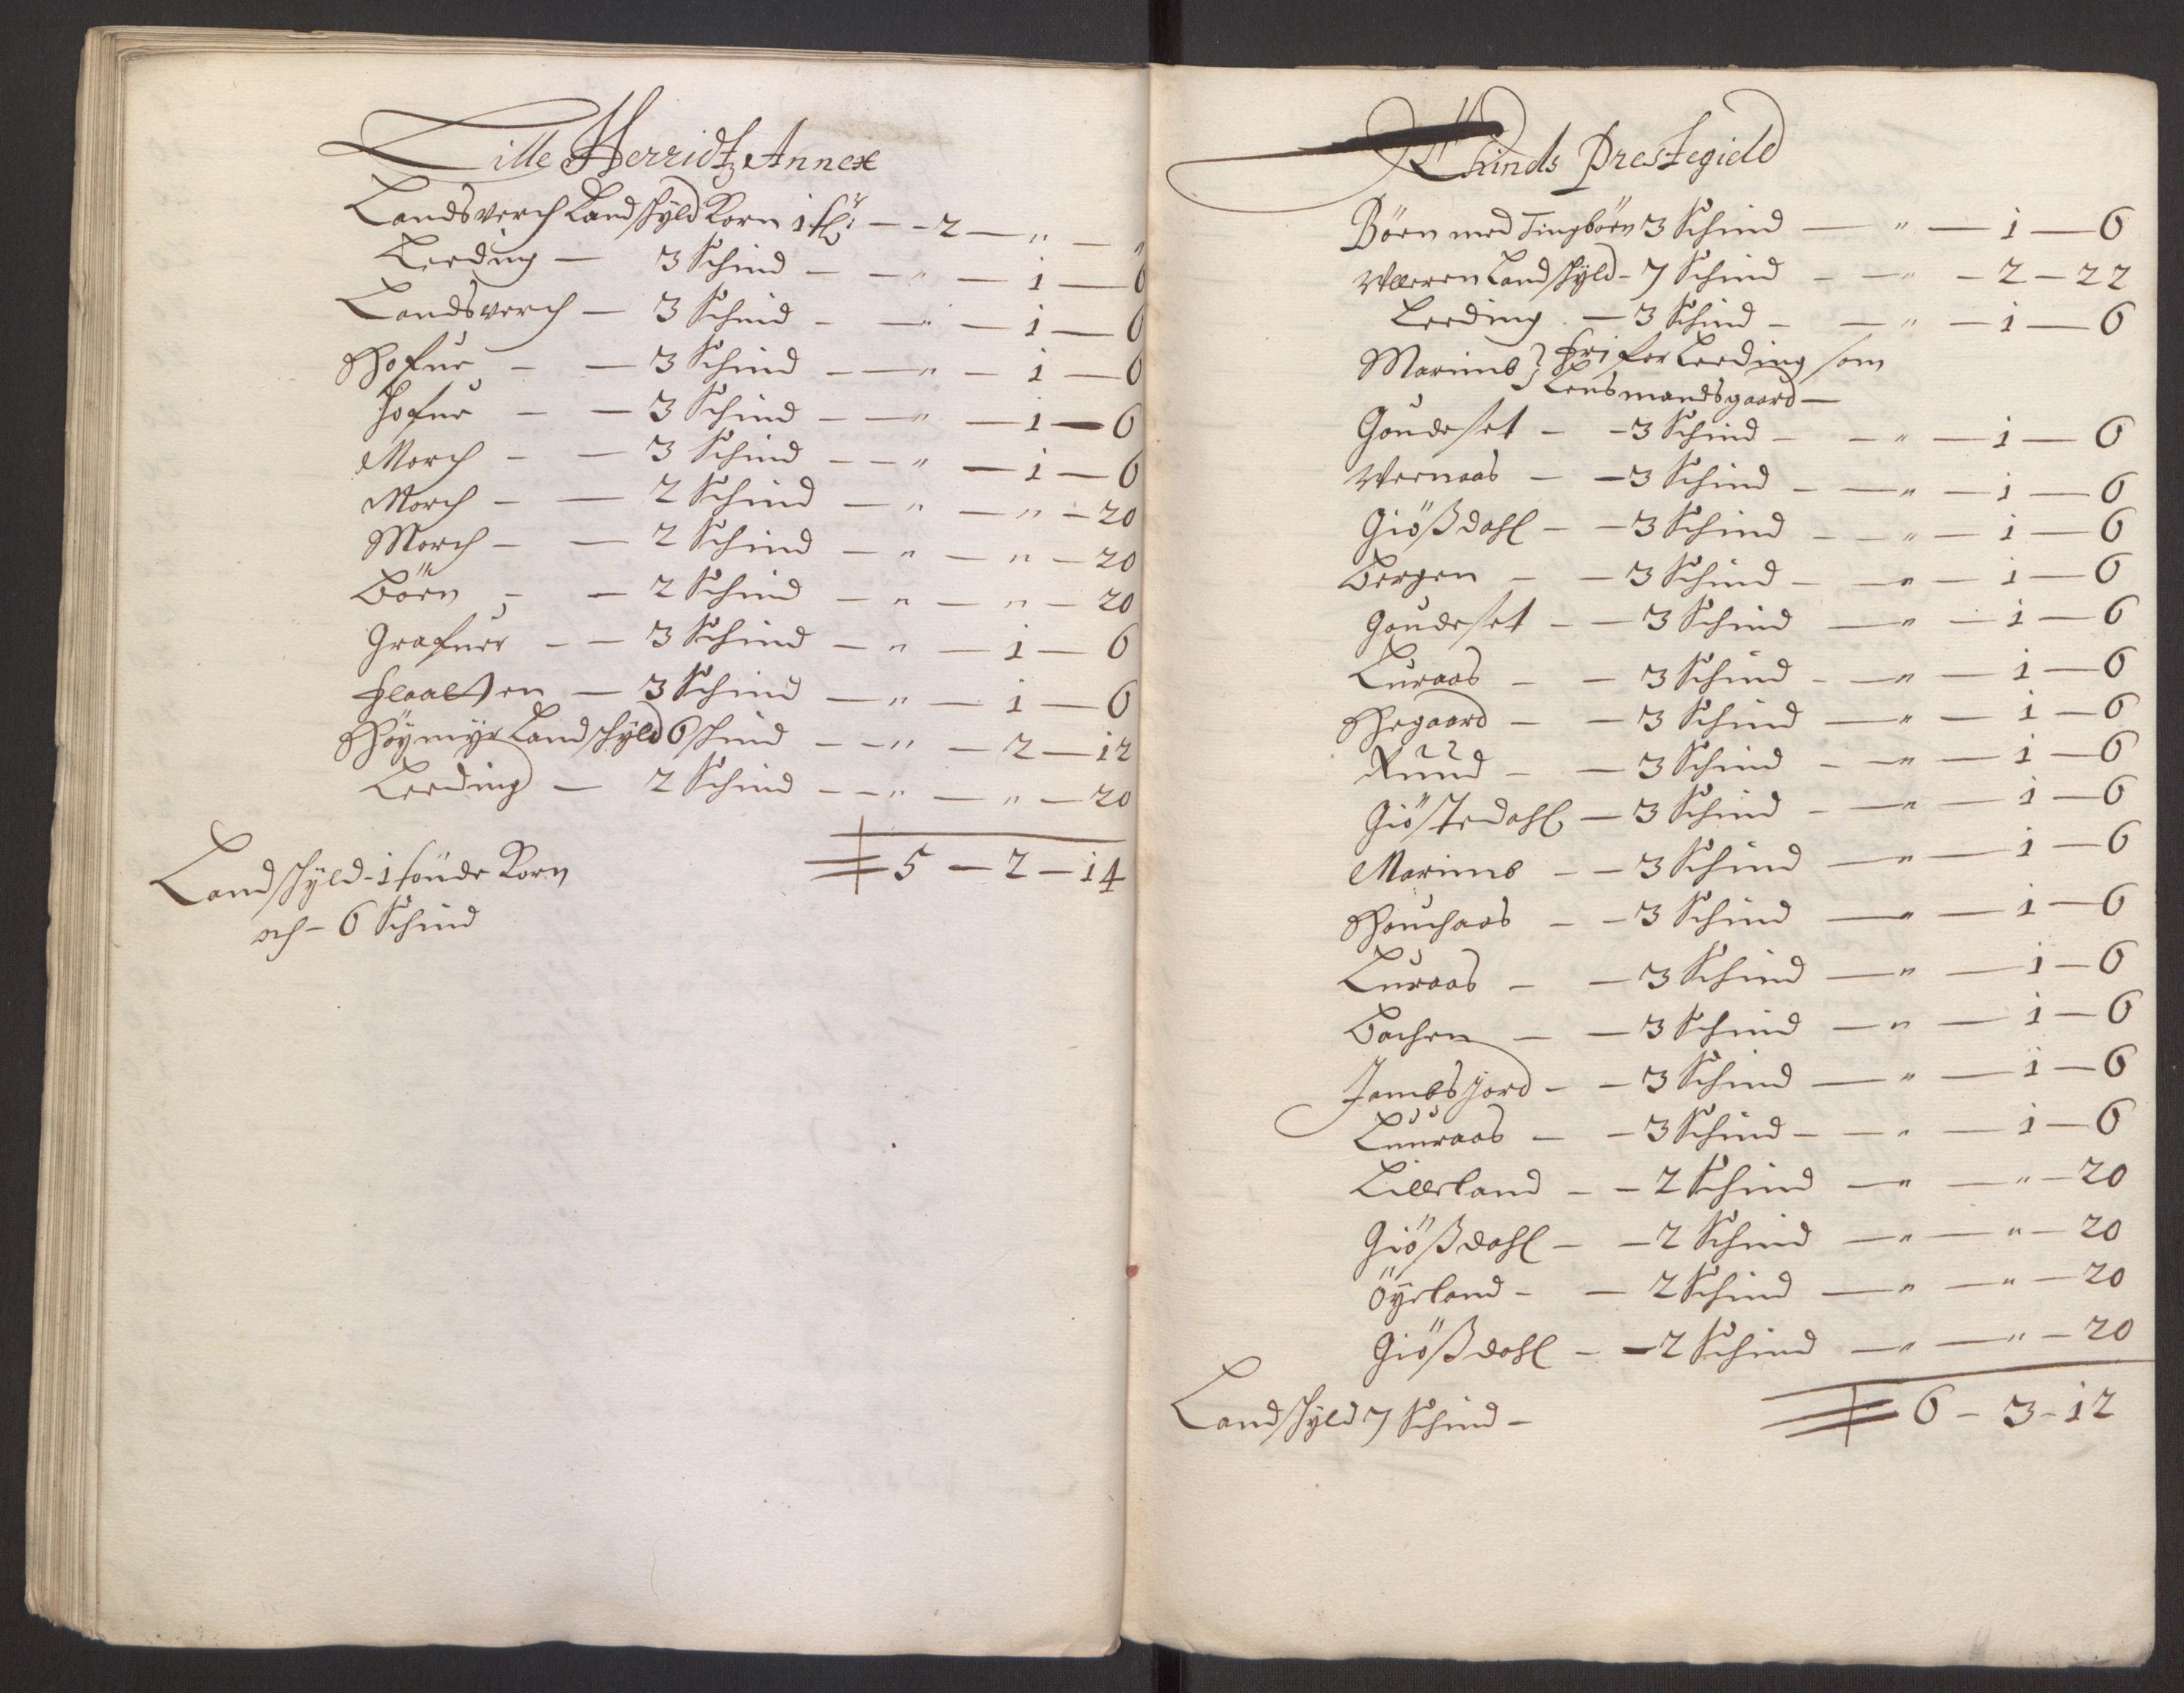 Lille Herridtz Annex
Landsverch Landschyld Korn 1 sld: — 2 — " — "
Leeding — 3 Schind — " — 1 — 6
Landsverch — 3 Schind — " — 1 — 6
Hofue — 3 Schind — " — 1 — 6
Hofue — 3 Schind — " — 1 — 6
March — 3 Schind — " — 1 — 6
March — 2 Schind — " — " — 20
March — 2 Schind — " — " — 20
Böen — 2 Schind — " — " — 20
Grafuer — 3 Schind — " — 1 — 6
Flaatten — 3 Schind — " — 1 — 6
Höymyr Landschyld 6 schind — " — 2 — 12
Leeding — 2 Schind — " — " — 20
5 — 2 — 14
Landschyld - 1 sönde Korn
och - 6 Schind
Thinds Prestegield
Böen med Tingböen 3 Schind — " — 1 — 6
Vlleren Landschyld - 7 Schind — " — 2 — 22
Leeding — 3 Schind — " — 1 — 6
Marimb } fri for Leeding som
Lensmandsgaard —
Goudeset — 3 Schind — " — 1 — 6
Vernaas — 3 Schind — " — 1 — 6
Giößdahl — 3 Schind — " — 1 — 6
Bergen — 3 Schind — " — 1 — 6
Goudeset — 3 Schind — " — 1 — 6
Luraas — 3 Schind — " — 1 — 6
Hegaard — 3 Schind — " — 1 — 6
Ruud — 3 Schind — " — 1 — 6
Giöstedahl — 3 Schind — " — 1 — 6
Marimb — 3 Schind — " — 1 — 6
Houchaas — 3 Schind — " — 1 — 6
Luraas — 3 Schind — " — 1 — 6
Bachen — 3 Schind — " — 1 — 6
Jambsjord — 3 Schind — " — 1 — 6
Luuraas — 3 Schind — " — 1 — 6
Lilleland — 2 Schind — " — " — 20
Giößdahl — 2 Schind — " — " — 20
Öyeland — 2 Schind — " — " — 20
Giößdahl — 2 Schind — " — " — 20
Landschyld 7 Schind —
6 — 3 — 12